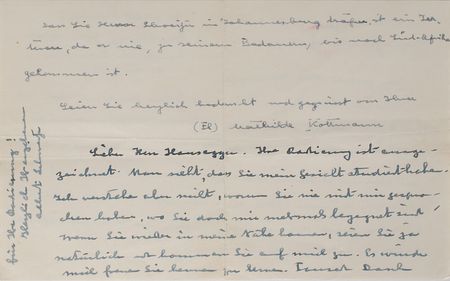 dass Sie Herrn Schweitzer in Johannesburg träfen, ist ein Irr-
tum, da er nie, zu seinem Bedauern, bis nach Süd-Afrika
gekommen ist.
Seien Sie herzlich bedankt und gegrüsst von Ihrer
(El) Mathilde Kottmann
Lieber Herr Hansegger. Ihre Radierung ist ausge-
zeichnet. Man sieht, dass Sie mein Gesicht studiert haben.
Ich verstehe aber nicht, warum Sie nie mit mir gespro-
chen haben, wo Sie doch mir mehrmals begegnet sind
Wenn Sie wieder in meine Nähe kommen, seien Sie ja
natürlich und kommen Sie auf mich zu. Es würde
mich freuen Sie kennen zu lernen. Tausend Dank
für Ihre Radierung!
Herzlich Ihr ergebener
Albert Schweitzer